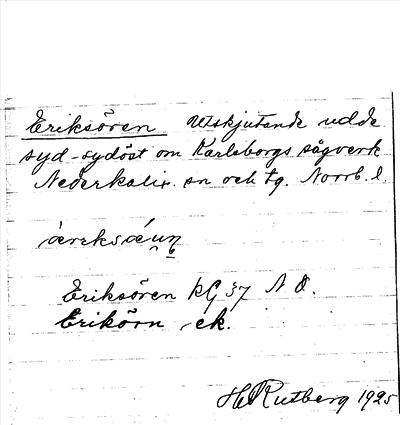 Eriksören Utskjutande udde
syd-sydöst om Karlsborgs sågverk
Nederkalix sn och tg. Norrb. l.
Eriksören kG 37 N O.
Erikörn ek.
H Rutberg 1925